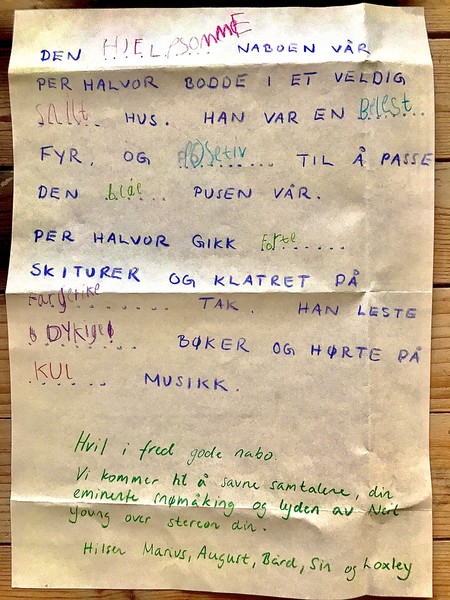 DEN HJELPSOMME NABOEN VÅR
PER HALVOR BODDE I ET VELDIG
Sallt HUS. HAN VAR EN Belest
FYR, OG POSetiv TIL Å PASSE
DEN blåe PUSEN VÅR.
PER HALVOR GIKK Forte
SKITURER OG KLATRET PÅ
Fargerike TAK. HAN LESTE
BØKER OG HØRTE PÅ
KUL MUSIKK.
Hvil i fred gode nabo.
Vi kommer til å savne samtalene, din
eminente snømåking og lyden av Neil
Young over stereoen din.
Hilsen Marius, August, Bård, Siri og Loxley